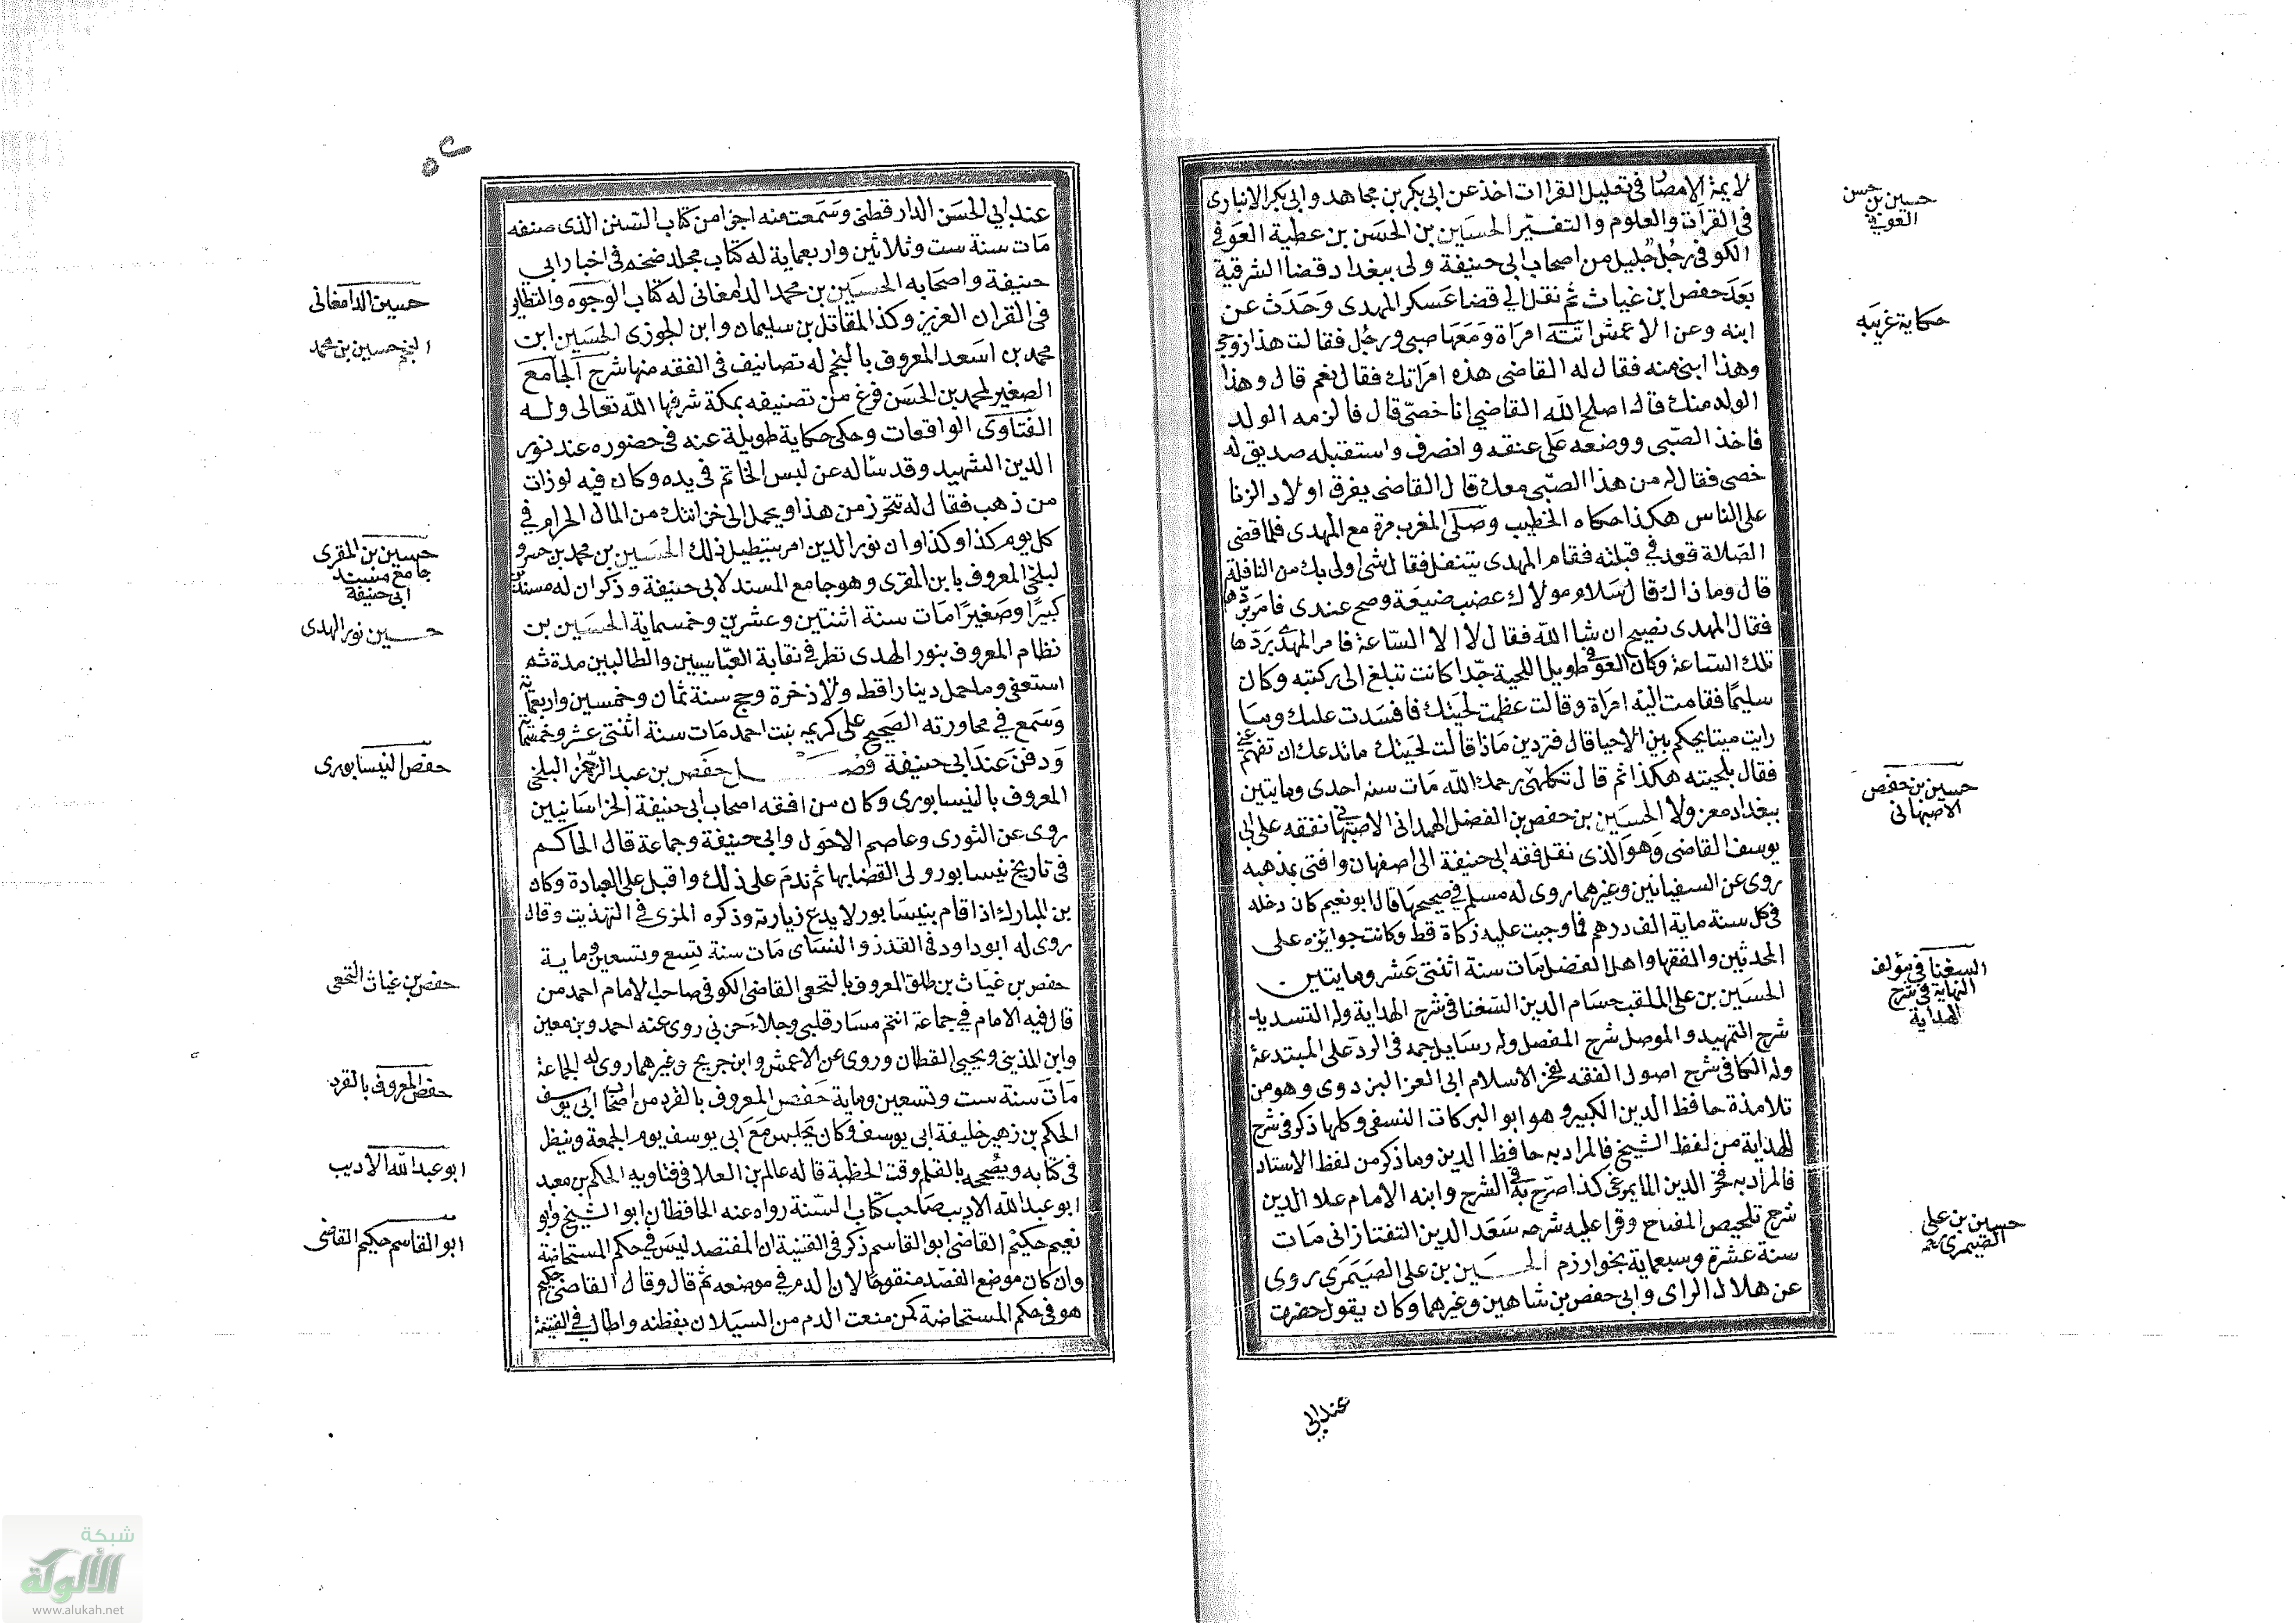 لايمة الامصار في تعليل القراات اخذ عن ابي بكر بن مجاهد وابي بكر الانباري
في القرآت والعلوم والتفسير الحسين بن الحسن بن عطية العوفي
الكوفي رجُل جليل من اصحاب ابي حنيفة ولى ببغداد قضا الشرقية
بعد حفص ابن غياث ثم نقل الي قضا عسكر المهدى وحدث عن
ابنه وعن الاعمش اتته امراة ومعها صبي ورجُل فقالت هذا زوجي
وهذا ابني منه فقال له القاضي هذه امراتك فقال نعم قال وهذا
الولد منك قال اصلح الله القاضي انا خصىّ قال فالزمه الولد
فاخذ الصّبى ووضعه على عنقه وانصرف واستقبله صديق له
خصى فقال له من هذا الصّبي معك قال القاضى يفرق اولاد الزنا
على الناس هكذا حكاه الخطيب وصلى المغرب مرة مع المهدى فلما قضى
الصّلاة قعد في قبلته فقام المهدى يتنفل فقال شى اولى بك من النافلة
قال وما ذاك قال سلام مولاك غصب ضيعة وصح عندى فامر بردّها
فقال المهدى نصبح ان شا الله فقال لا الا السّاعة فامر المهدى بردّها
تلك السّاعة وكان العوفي طويل اللحية جدّا كانت تبلغ الى ركبته وكان
سليمًا فقامت اليه امراة وقالت عظمت لحيتك فافسدت عليك وما
رايت ميتا يحكم بين الاحيا قال فتردين ماذا قالت لحيتك ما تدعك ان تفهم عني
فقال بلحيته هكذا ثم قال تكلمي يرحمك الله مات سنه احدى ومايتين
ببغداد معزولا الحسين بن حفص بن الفضل الهمداني الاصبهاني تفقه على ابى
يوسف القاضى وهو الذى نقل فقه ابى حنيفة الى اصفهان وافتى بمذهبه
روى عن السفيانين وغيرهما روى له مسلم في صحيحه قال ابو نعيم كان دخله
فى كل سنة ماية الف درهم فما وجبت عليه زكاة قط وكانت جوايزه على
المحدثين والفقها واهل الفضل مات سنة اثنتى عشر ومايتين
الحسين بن على الملقب حسام الدين السّغناقى شرح الهداية وله التسديد
شرح التمهيد والموصل شرح المفصل وله رسايل جمه فى الرد على المبتدعة
وله الكافى شرح اصول الفقه لفخر الاسلام ابى العز البزدوى وهو من
تلامذة حافظ الدين الكبير وهو ابو البركات النسفى وكلما ذكر فى شرح
الهداية من لفظ الشيخ فالمراد به حافظ الدين وما ذكر من لفظ الاستاد
فالمراد به فخر الدين المايمرغى كذا صرّح به في الشرح وابنه الامام علا الدين
شرح تلخيص المفتاح وقرا عليه شرحه سعد الدين التفتازانى مات
سنة عشرة وسبعماية بخوارزم الحسين بن على الصيمرى روى
عن هلال الراى وابى حفص بن شاهين وغيرهما وكان يقول حضرت
عند ابي
حسين بن حسن
العوفي
حكاية غريبه
حسين بن حفص
الاصبهانى
السغناقي مؤلف
النهاية في شرح
الهداية
حسين بن على
الصيمرى
عند ابي الحسن الدارقطني وسمعت منه اجزا من كتاب السنن الذى صنفه
مات سنة ست وثلاثين واربعماية له كتاب مجلد ضخم فى اخبار ابي
حنيفة واصحابه الحسين بن محمد الدامغاني له كتاب الوجوه والنظاير
فى القران العزيز وكذا لمقاتل بن سليمان وابن الجوزى الحسين ابن
محمد بن اسعد المعروف بالنجم له تصانيف فى الفقه منها شرح الجامع
الصغير لمحمد بن الحسن فرغ من تصنيفه بمكة شرفها الله تعالى وله
الفتاوى الواقعات وحكى حكاية طويلة عنه فى حضوره عند نور
الدين الشهيد وقد ساله عن لبس الخاتم فى يده وكان فيه لوزات
من ذهب فقال له تتحرز من هذا ويحمل الى خزانتك من المال الحرام في
كل يوم كذا وكذا وان نور الدين امر بتبطيل ذلك الحسين بن محمد بن خسرو
البلخى المعروف بابن المقرى وهو جامع المسند لابى حنيفة وذكر ان له مسندين
كبيرًا وصغيرًا مات سنة اثنتين وعشرين وخمسماية الحسين بن
نظام المعروف بنور الهدى نظر فى نقابة العبّاسيين والطالبين مدة ثم
استعفى وما حمل دينارا قط ولا ذخرة وحج سنة ثمان وخمسين واربعماية
وسمع في مجاورته الصحيح على كريمه بنت احمد مات سنة اثنتى عشر وخمسماية
ودفن عند ابى حنيفة فصل حفص بن عبد الرحمن البلخى
المعروف بالنيسابورى وكان من افقه اصحاب ابى حنيفة الخراسانيين
روى عن الثورى وعاصم الاحول وابى حنيفة وجماعة قال الحاكم
فى تاريخ نيسابور ولى القضا بها ثم ندم على ذلك واقبل على العبادة وكان
بن المبارك اذا قام بنيسابور لا يدع زيارته وذكره المزى في التهذيب وقال
روى له ابو داود فى القدر والنساى مات سنة تسع وتسعين وماية
حفص بن غياث بن طلق المعروف بالنخعى القاضى الكوفى صاحب الامام احمد من
قال فيه الامام فى جماعة انتم مسار قلبى وجلاء حزنى روى عنه احمد وبن معين
وابن المدينى ويحيى القطان وروى عن الاعمش وابن جريج وغيرهما روى له الجماعة
مات سنة ست وتسعين وماية حفص المعروف بالفرد من اصحاب ابى يوسف
الحكم بن زهير خليفة ابى يوسف وكان يجلس مع ابى يوسف يوم الجمعة وينظر
فى كتابه ويصححه بالقلم وقت الخطبة قاله عالم بن العلا فى فتاويه الحكم بن معبد
ابو عبد الله الاديب صاحب كتاب السّنة رواه عنه الحافظان ابو الشيخ وابو
نعيم حكيم القاضى ابو القاسم ذكر فى القنية ان المفتصد ليس فى حكم المستحاضة
وان كان موضع الفصد منقوحا لان الدم في موضعه ثم قال وقال القاضى حكيم
هو فى حكم المستحاضة كمن منعت الدم من السيلان بقطنه واطال في القنية
حسين الدامغانى
النجم حسين بن محمد
حسين بن المقرى
جامع مسند
ابى حنيفة
حسين نور الهدى
حفص النيسابورى
حفص بن غياث النخعى
حفص المعروف بالفرد
ابو عبد الله الاديب
ابو القاسم حكيم القاضى
شبكة
الألوكة
www.alukah.net